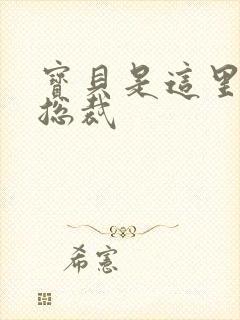 寶貝是這里
總裁
希憲